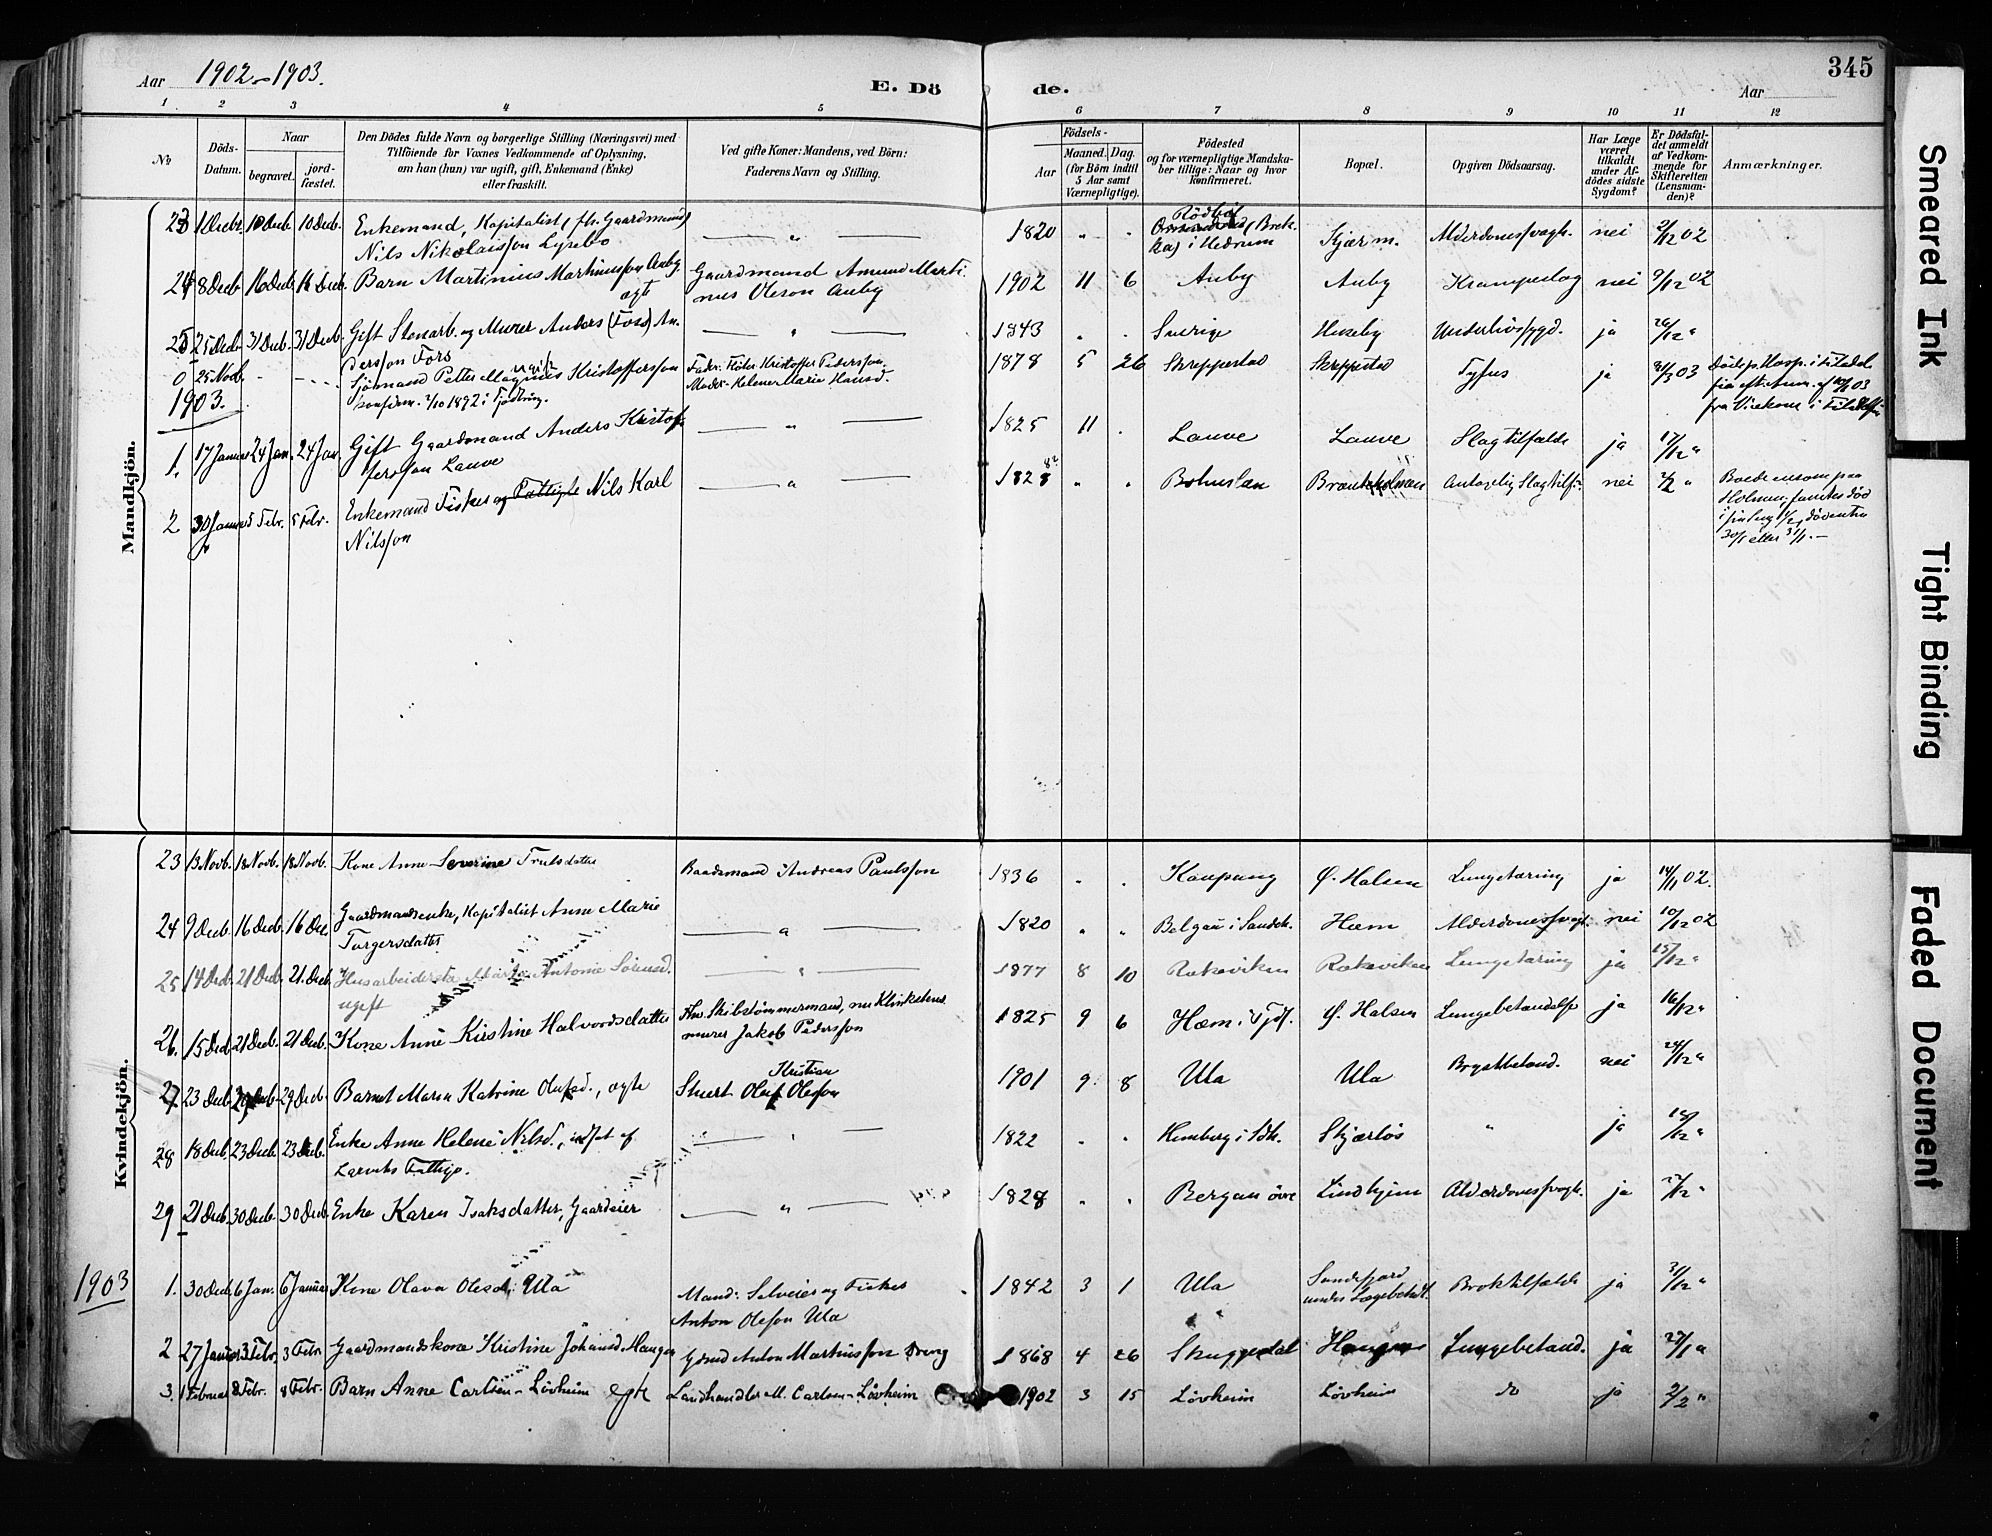 345
Aar 1902-1903.
E. Döde.
Aar
1 2 3 4 5 6 7 8 9 10 11 12
No
Döds-Datum.
Naar
begravet.
jord-fæstet.
Den Dödes fulde Navn og borgerlige Stilling (Næringsvei) med
Tilföiende for Voxnes Vedkommende af Oplysning,
om han (hun) var ugift, gift, Enkemand (Enke)
eller fraskilt.
Ved gifte Koner: Mandens, ved Börn:
Faderens Navn og Stilling.
Födsels-
Aar
Maaned. Dag.
(for Börn indtil
5 Aar samt
Værnepligtige).
Födested
og for værnepligtige Mandska-
ber tillige: Naar og hvor
konfirmeret.
Bopæl.
Opgiven Dödsaarsag.
Har Læge
været
tilkaldt
under Af-
dödes sidste
Sygdom?
Er Dödsfal-
det anmeldt
af Vedkom-
mende for
Skifteretten
(Lensman-
den)?
Anmærkninger.
Mandkjön.
23 1 Decbr. 10 Decb. 10 Decb. Enkemand, Kapitalist (fh. Gaardmand)
Nils Nikolaisson Lysebo
1820 Rödbøl (Brek-
ka) i Hedrum Skjærm. Alderdomssvagh. nei 2/12 02
24 8 Decb. 16 Decb. 16 Decb. Barn Martinius Martiniusson Auby.
ægte
Gaardmand Amund Marti-
nus Oleson Auby
1902 11 6 Auby Auby Krampeslag nei 9/12 02
25 25 Decb. 31 Decb. 31 Decb. Gift Stenarb. og Murer Anders (Fors) An-
dersson Fors
1843 Sverige Huseby Underlivssygd. ja 26/12 "
0 25 Novb. Sjömand Petter Magnus Kristoffersson
ugift
konfirm. 2/10 1892 i Tjodling.
Fader: Fløter Kristoffer Pedersson.
Moder: Helene Marie Hansd.
1878 5 26 Skreppestad Skreppestad Tyfus ja 03
1903.
1. 17 Januar 24 Jan. 24 Jan. Gift Gaardmand Anders Kristof-
fersson Lauve
1825 11 Lauve Lauve Slagtilfælde ja 17/12 "
2 30 Januar 5 Febr. 5 Febr. Enkemand Fisker og Fattigle Nils Karl
Nilsson
1828 Bohuslen Antagelig Slagtilf. nei 2/2 "
Boede ensom paa
Holmen, fandtes död
i sin Seng 1/2, döv enten
30/1 eller 31/1.
Kvindekjön.
23 13 Novb. 18 Novb. 18 Novb. Kone Anne Severine Trulsdatter
Baadsmand Andreas Paulsson
1836 Kaupang Ø. Halsen Lungetæring ja 14/11 02.
24 9 Decb. 16 Decb. 16 Dec. Gaardmandsenke, Kapitalist Anne Marie
Torgersdatter
1820 Bergan i Sandeh. Hæm Alderdomssvagh. nei 10/12 02
25 14 Decb. 21 Decb. 21 Decb. Husarbeiderske Marte Antonie Sörensd.
ugift
1877 8 10 Rakeviken Rakeviken Lungetæring ja 15/12 "
26. 15 Decb. 21 Decb. 21 Decb. Kone Anne Kirstine Halvordsdatter
Fhv. Skibstömmermand, nu Klinkeløns-
murer Jakob Pedersson
1825 9 6 Hæm i Tjdl. Ø. Halsen Lungebetændelse ja 16/12 "
27 23 Decb. 29 Decb. 29 Decb. Barnet Maren Katrine Olufsd., ægte
Kristian
Stuert Oluf Olesson
1901 9 8 Ula Ula Brystbetænd. nei 24/12 "
28 18 Decb. 23 Decb. 23 Decb. Enke Anne Helene Nilsd., indsat af
Larviks Fattigv.
1822 Himberg i Sdh. Skjærløs " ja 12/12 "
29 21 Decb. 30 Decb. 30 Decb. Enke Karen Isaksdatter, Gaardeier
1828 Bergan övre Lindhjem Alderdomssvagh. ja 27/12 "
1903
1. 30 Decb. 6 Jan. 6 Januar Kone Olava Olesd. Ula
Mand: Selveier og Fisker
Anton Olesson Ula
1842 3 1 Ula Sandefjord
under Lægebehdl. Broktilfælde ja 31/12 "
2 27 Januar 3 Febr. 3 Febr. Gaardmandskone Kristine Johansd. Haugen
Gdmd Anton Martinsson
1868 4 26 Skuggedal Haugen Lungebetænd. ja 29/1 "
3. 1 Februar 8 Febr. 8 Febr. Barn Anne Carlsen-Lövheim ægte
Landhandler M. Carlsen-Lövheim
1902 3 15 Lövheim Lövheim do ja 2/2 "
Smeared Ink
Tight Binding
Faded Document